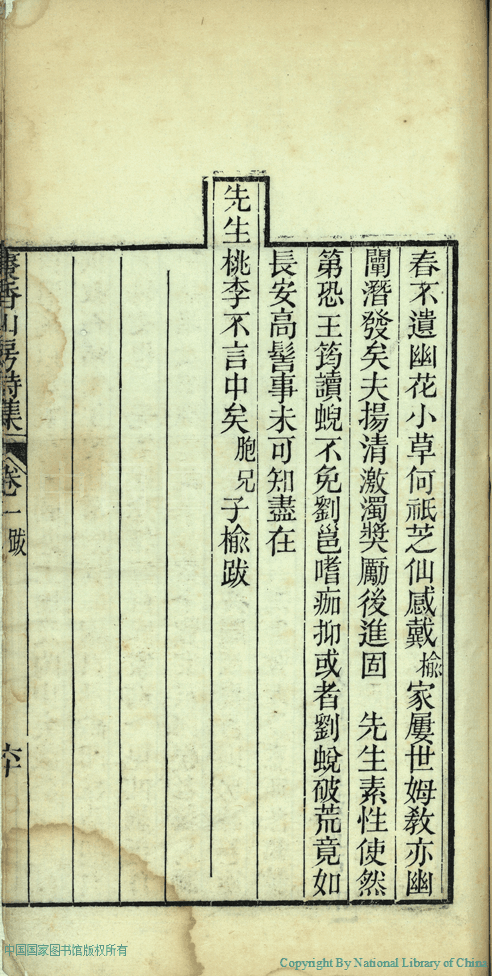 春不遺幽花小草何祇芝仙感戴榆家屢世姆教亦幽
闡潛發矣夫揚清激濁獎厲後進固　先生素性使然
第恐王筠讀蜺不免劉邕嗜痂抑或者劉蛻破荒竟如
長安高髻事未可知盡在
先生桃李不言中矣胞兄子榆跋
香山房詩集
卷一　跋
中国国家图书馆版权所有
Copyright By National Library of China